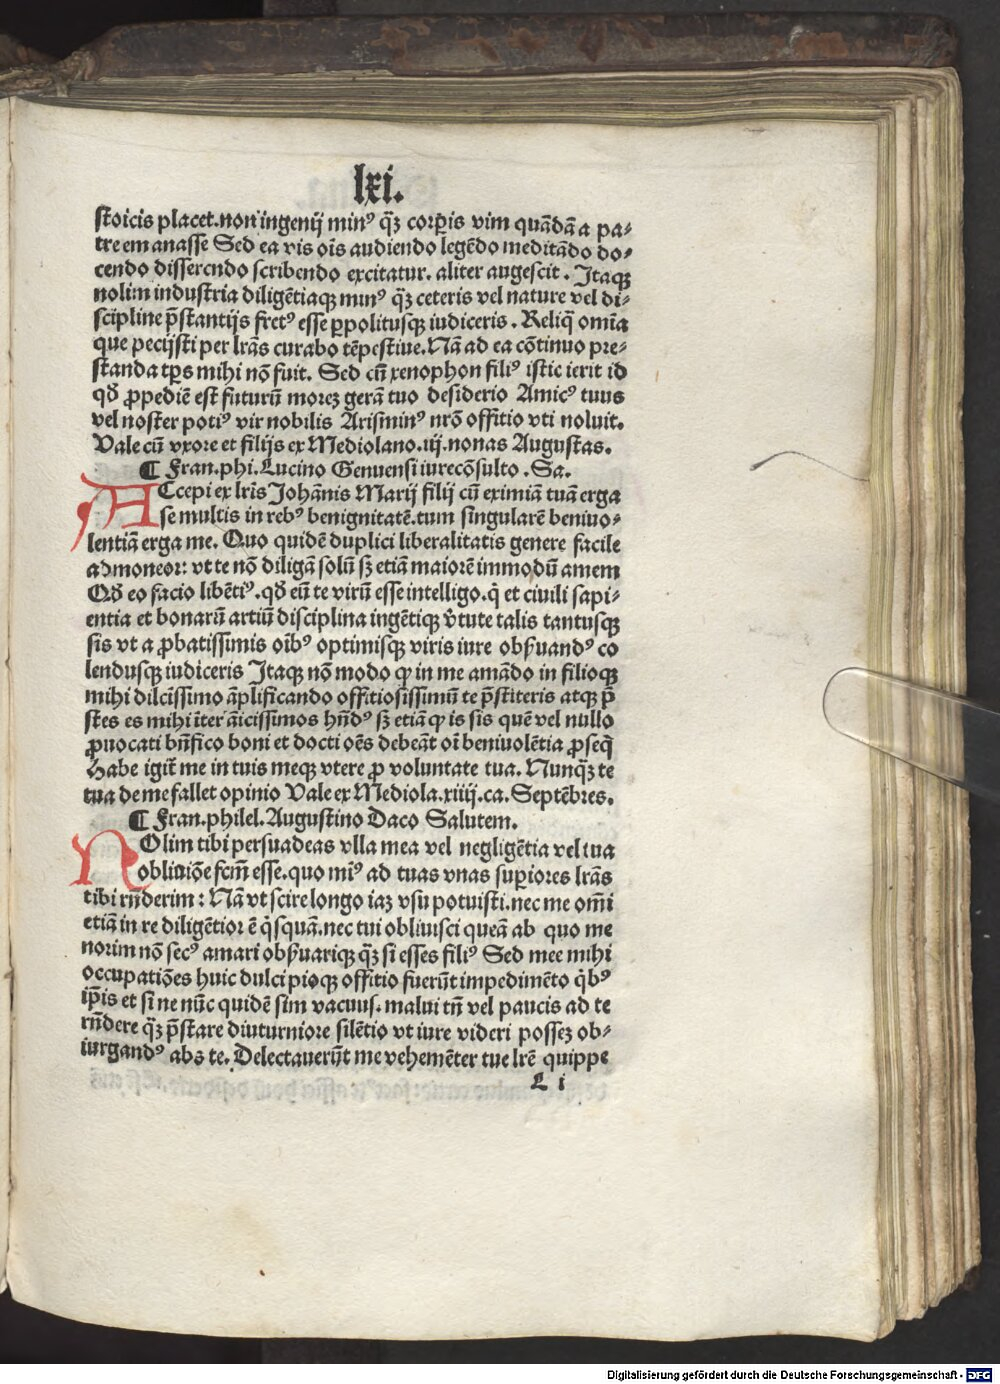 lxi.
stoicis placet.non ingenij minꝰ q̄ꝫ corꝑis vim quādā a pa-
tre emanasse Sed ea vis oīs audiendo legēdo meditādo do-
cendo disserendo scribendo excitatur. aliter augescit. Itaqꝫ
nolim industria diligētiaqꝫ minꝰ q̄ꝫ ceteris vel nature vel di-
scipline p̄stantijs fretꝰ esse ꝑpolitusqꝫ iudiceris. Reliq̄ omīa
que pecijsti per lr̄as curabo tēpestiue. Nā ad ea cōtinuo pre-
standa tp̄s mihi nō fuit. Sed cū xenophon filiꝰ istic ierit id
qđ ꝓpediē est futurū moreꝫ gerā tuo desiderio Amicꝰ tuus
vel noster potiꝰ vir nobilis Arisminꝰ nr̄o offitio vti noluit.
Vale cū vxore et filijs ex Mediolano.iij.nonas Augustas.
¶ Fran.phi.Lucino Genuensi iurecōsulto. Sa.
ACcepi ex lr̄is Johānis Marij filij cū eximiā tuā erga
se multis in rebꝰ benignitatē.tum singularē beniuo-
lentiā erga me. Quo quidē duplici liberalitatis genere facile
admoneor: vt te nō diligā solū sꝫ etiā maiorē immodū amem
Qđ eo facio libētiꝰ.qđ eū te virū esse intelligo.q̇ et ciuili sapi-
entia et bonarū artiū disciplina ingētiqꝫ v̄tute talis tantusqꝫ
sis vt a ꝓbatissimis oībꝰ optimisqꝫ viris iure obẜuandꝰ co
lendusqꝫ iudiceris Itaqꝫ nō modo ꝙ in me amādo in filioqꝫ
mihi dilcissimo āplificando offitiosissimū te p̄stiteris atqꝫ p̄
stes es mihi īter āicissimos hn̄dꝰ sꝫ etiā ꝙ is sis quē vel nullo
ꝓuocati bn̄fico boni et docti oēs debeāt oī beniuolētia ꝓseq̄
Habe igit̄ me in tuis meqꝫ vtere ꝓ voluntate tua. Nunq̄ꝫ te
tua de me fallet opinio Vale ex Mediola.xiiij.ca. Septēbres.
¶ Fran.philel.Augustino Daco Salutem.
NOlim tibi persuadeas vlla mea vel negligētia vel tua
obliuiōe fcm̄ esse.quo miꝰ ad tuas vnas suꝑiores lr̄as
tibi rn̄derim: Nā vt scire longo iaꝫ vsu potuisti.nec me om̄i
etiā in re diligētior ē q̇squā.nec tui obliuisci queā ab quo me
norim nō secꝰ amari obẜuariqꝫ q̄ꝫ si esses filiꝰ Sed mee mihi
occupatiōes huic dulci pioqꝫ offitio fuerūt impedimēto q̇bꝰ
ip̄is et si ne nūc quidē sim vacuus. malui tn̄ vel paucis ad te
rn̄dere q̄ꝫ p̄stare diuturniore silētio vt iure videri posseꝫ ob-
iurgandꝰ abs te. Delectauerūt me vehemēter tue lr̄e quippe
L i
Digitalisierung gefördert durch die Deutsche Forschungsgemeinschaft - DFG